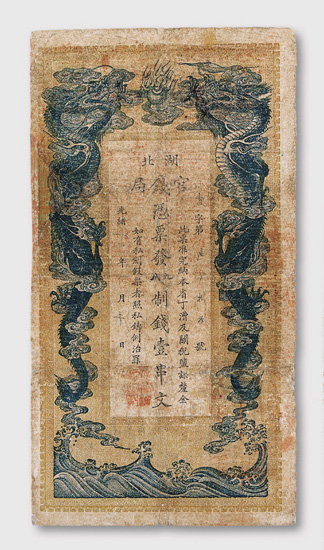 湖北
官錢局
字第 號
此票准完納本省丁漕及關稅鹽課釐金
憑票發制錢壹串文
如有私刻假票者照私鑄例治罪
光緒 年 月 日